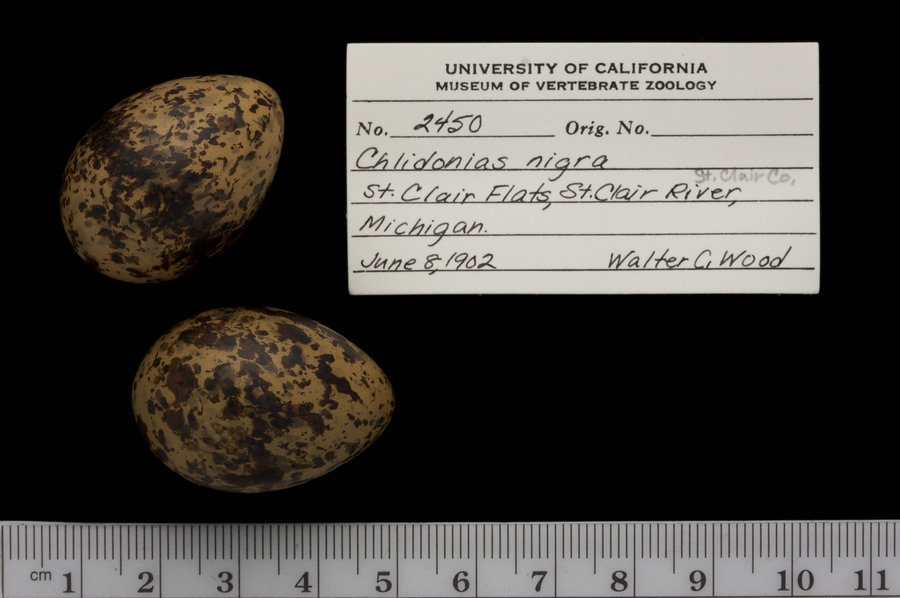 UNIVERSITY OF CALIFORNIA
MUSEUM OF VERTEBRATE ZOOLOGY
No. 2450 Orig. No.
Chlidonias nigra
St. Clair Co.,
St. Clair Flats, St. Clair River,
Michigan.
June 8, 1902 Walter C. Wood
cm 1 2 3 4 5 6 7 8 9 10 11